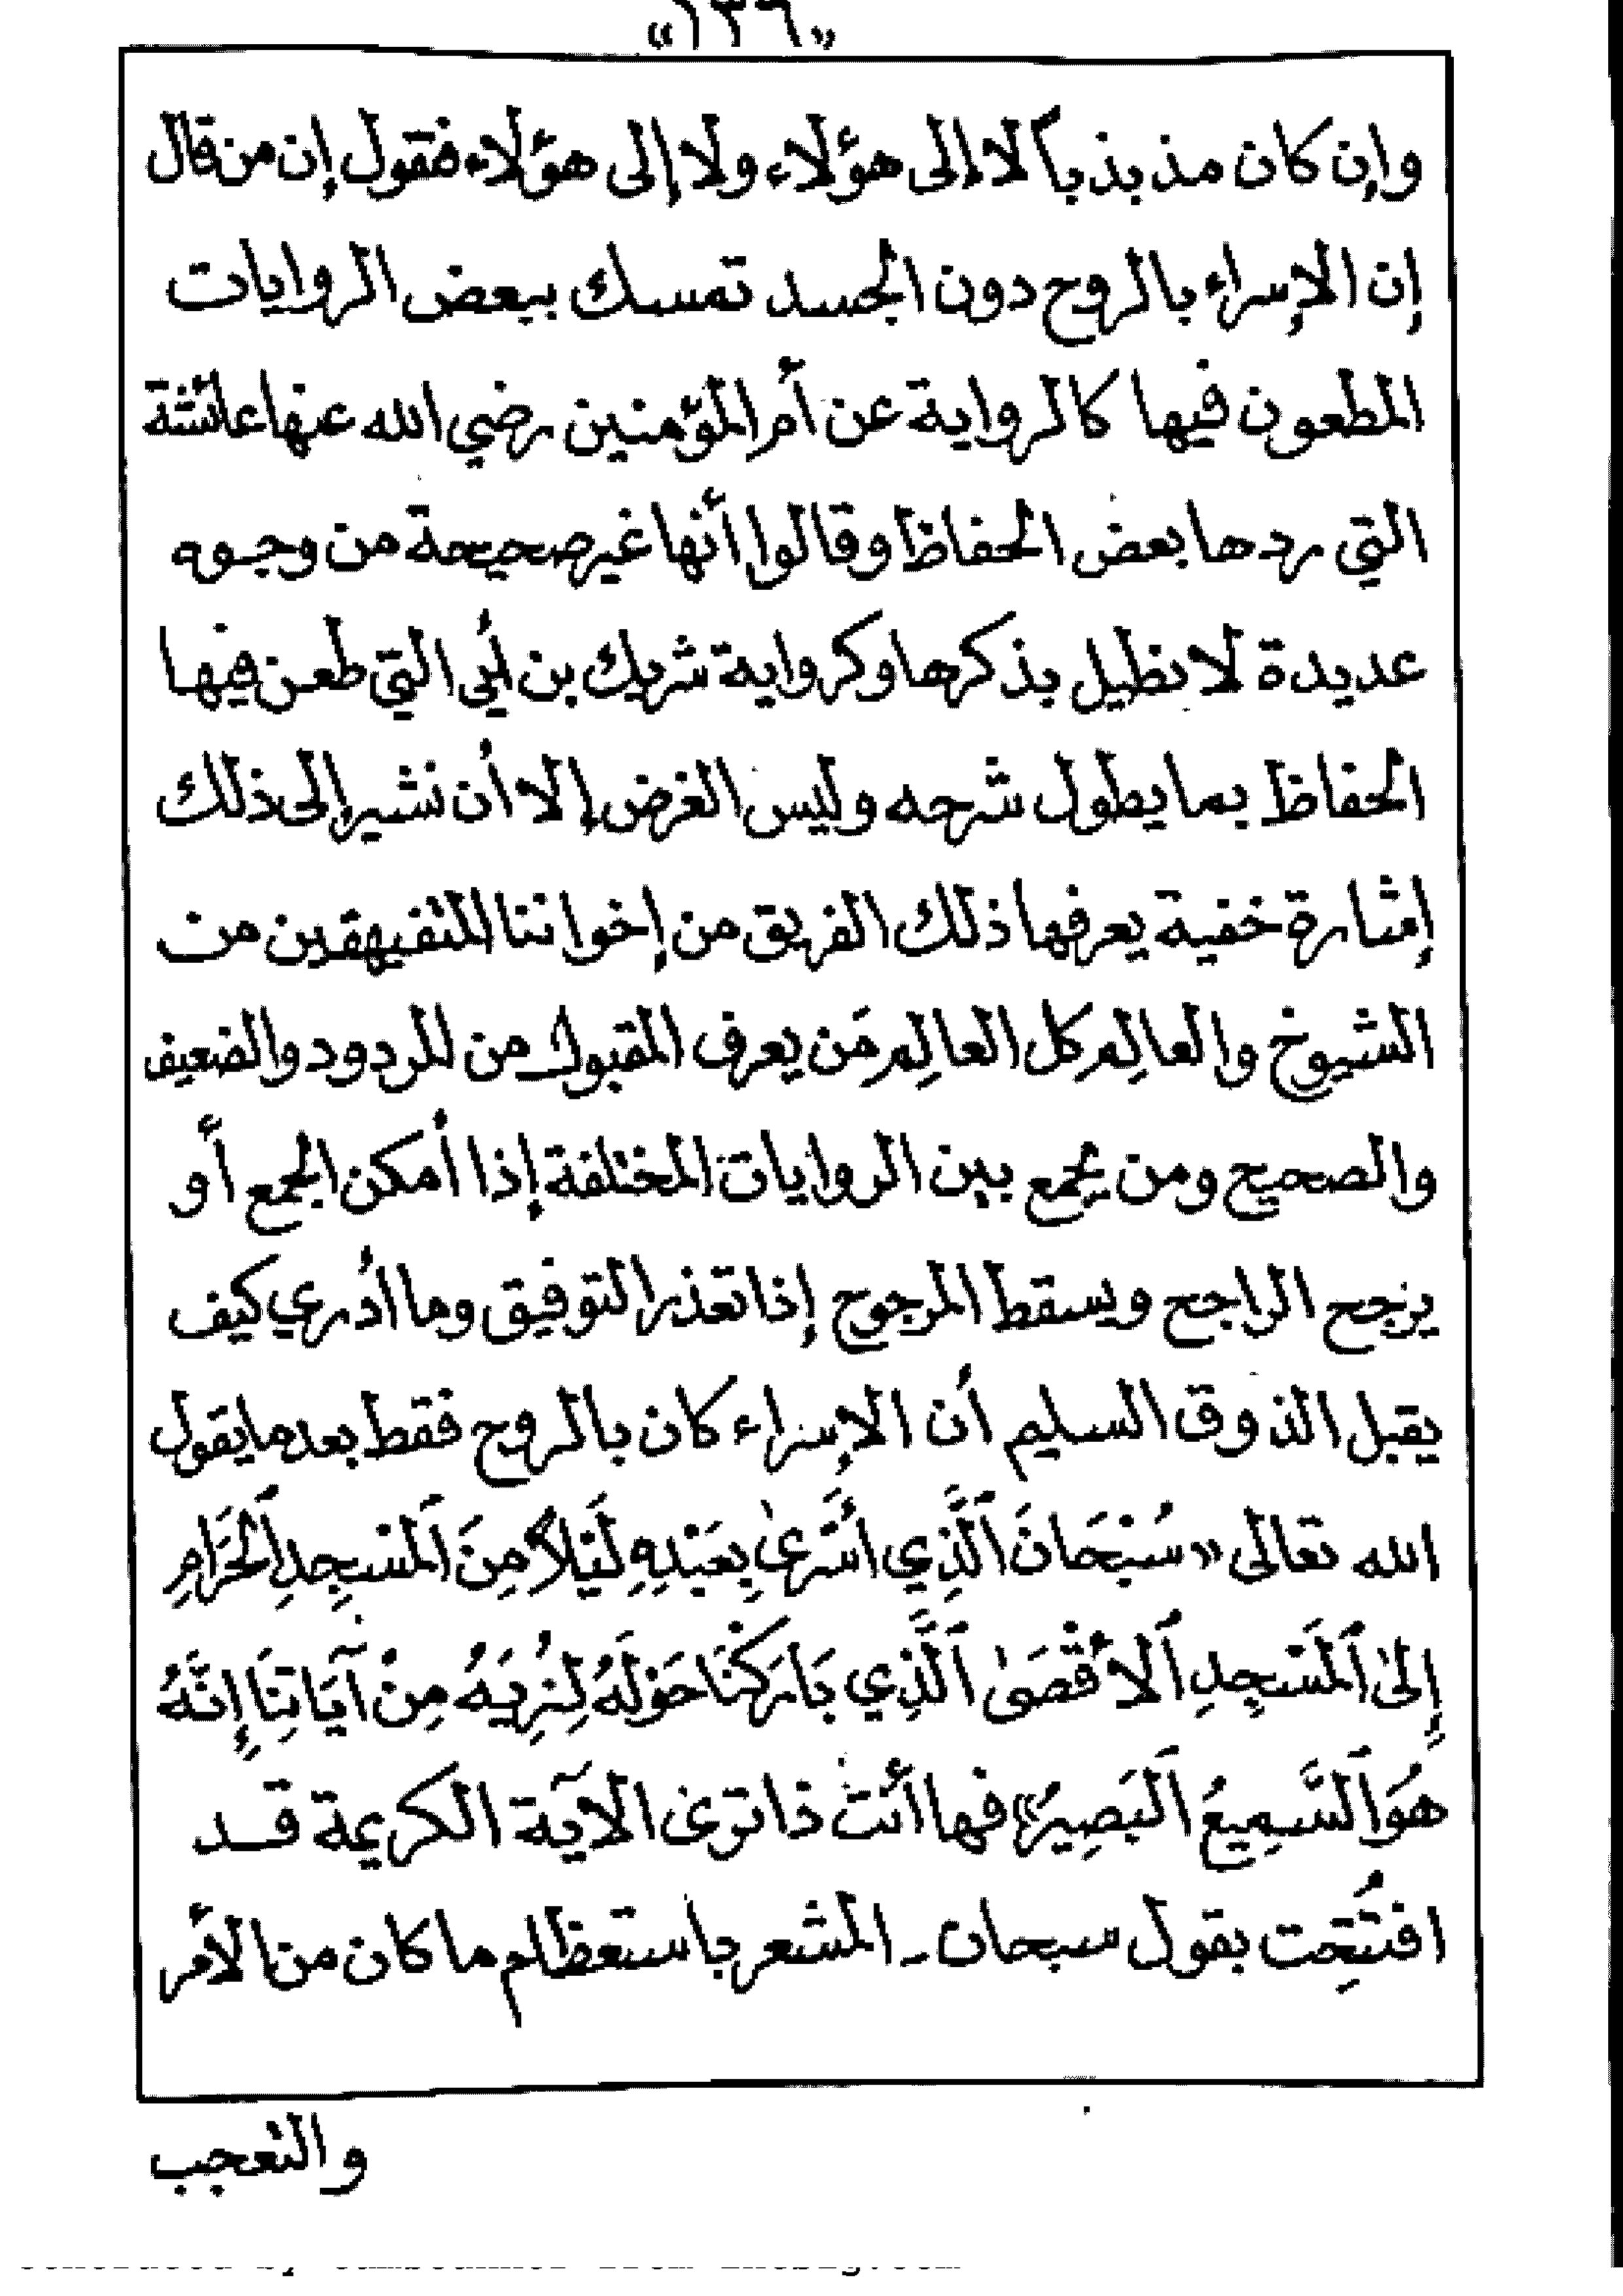 «١٣٦»
وإن كان مذبذباً لا إلى هؤلاء ولا إلى هؤلاء فقول إن من قال
إن الإسراء بالروح دون الجسد تمسك ببعض الروايات
المطعون فيها كالرواية عن أم المؤمنين رضي الله عنها عائشة
التي ردها بعض الحفاظ وقالوا أنها غير صحيحة من وجوه
عديدة لا نطيل بذكرها وكرواية شريك بن أبي التي طعن فيها
الحفاظ بما يطول شرحه وليس الغرض إلا أن نشير إلى ذلك
إشارة خفية يعرفها ذلك الفريق من إخواننا المتفيهقين من
الشيوخ والعالِم كل العالِم مَن يعرف المقبول من المردود والضعيف
والصحيح ومن يجمع بين الروايات المختلفة إذا أمكن الجمع أو
يرجح الراجح ويسقط المرجوح إذا تعذر التوفيق وما أدري كيف
يقبل الذوق السليم أن الإسراء كان بالروح فقط بعد ما يقول
الله تعالى «سُبْحَانَ ٱلَّذِي أَسْرَىٰ بِعَبْدِهِ لَيْلاً مِنَ ٱلْمَسْجِدِ ٱلْحَرَامِ
إِلَىٰ ٱلْمَسْجِدِ ٱلأَقْصَىٰ ٱلَّذِي بَارَكْنَا حَوْلَهُ لِنُرِيَهُ مِنْ آيَاتِنَا إِنَّهُ
هُوَ ٱلسَّمِيعُ ٱلْبَصِيرُ» فها أنت ذا ترى الآية الكريمة قد
افتُتِحت بقول سبحان ـ المشعر باستعظام ما كان من الأمر
والتعجب